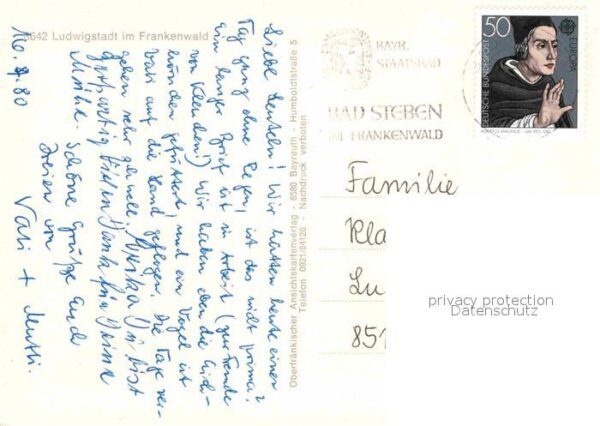 8642 Ludwigstadt im Frankenwald
16. 9. 80
Liebe Deuteln! Wir hatten heute einen
Tag ganz ohne Regen, ist das nicht prima?
Ein langer Brief ist in Arbeit (zur Freude
von Klein) Wir haben eben die Eich-
hörnchen gefüttert, und ein Vogel ist
Vati auf die Hand geflogen. Die Tage ver-
gehen sehr schnell.
Vielen Dank für Deine
Mühe. Schöne Grüße Euch
Dreien von
Vati + Mutti
Oberfränkischer Ansichtskartenverlag - 8580 Bayreuth - Humboldtstraße 5
Telefon 0921/64126 - Nachdruck verboten
BAYR.
STAATSBAD
BAD STEBEN
IM FRANKENWALD
50
DEUTSCHE BUNDESPOST
EUROPA
ALBERTUS MAGNUS
Familie
Kla
Lu
851
privacy protection
Datenschutz